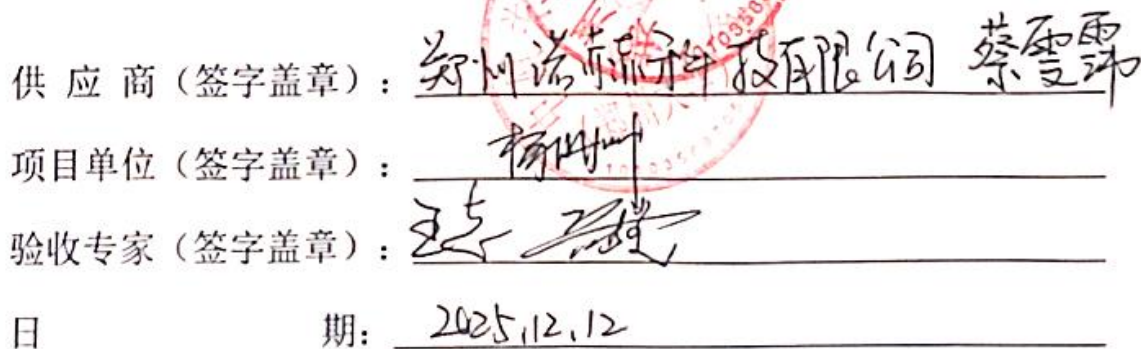 供应商（签字盖章）：郑州诺赫科技有限公司 蔡雯霈
项目单位（签字盖章）：
验收专家（签字盖章）：王志
日期：2025.12.12